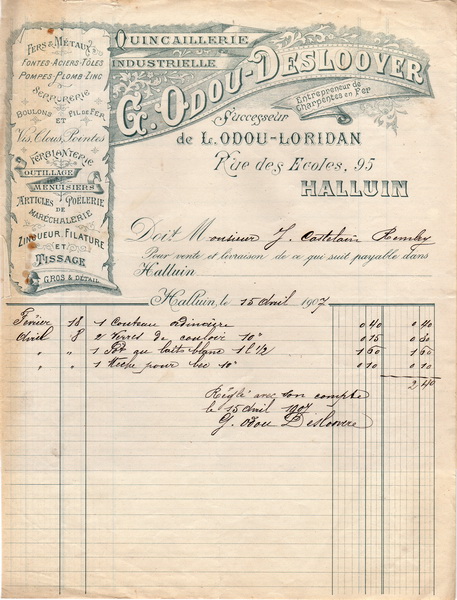 FERS & MÉTAUX
FONTES·ACIERS·TÔLES
POMPES·PLOMB·ZINC
SERRURERIE
BOULONS ET FIL DE FER
VIS, CLOUS, POINTES
FERBLANTERIE
OUTILLAGE
MENUISIERS
ARTICLES DE POÊLERIE
MARÉCHALERIE
ZINGUEUR, FILATURE
ET
TISSAGE
GROS & DÉTAIL
QUINCAILLERIE
INDUSTRIELLE
G. ODOU-DESLOOVER
Entrepreneur de
Charpentes en Fer
Successeur
de L. ODOU-LORIDAN
Rue des Ecoles, 95
HALLUIN
Doit Monsieur J. Castelain
Pour vente et livraison de ce qui suit payable dans
Halluin
Halluin, le 15 Avril 1907
Février 18 1 Couteau 0 40 0 40
Avril 8 2 Verres de couleur 10‴ 0 15 0 30
" " 1 Pot lait blanc 1 l 1/2 1 60 1 60
" " 1 Mèche pour bec 10‴ 0 10 0 10
2 40
Réglé avec son compte
le 15 Avril 1907
G. Odou Desloovere